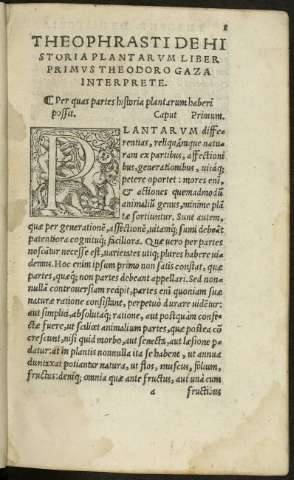 THEOPHRASTI DE HI
STORIA PLANTARVM LIBER
PRIMVS THEODORO GAZA
INTERPRETE.
¶ Per quas partes historia plantarum haberi
possit. Caput Primum.
PLANTARVM diffe-
rentias, reliquámque natu-
ram ex partibus, affectioni
bus, generationibus, uitáq;
petere oportet: mores eni,
& actiones quemadmodũ
animaliũ genus, minime plã
tæ sortiuntur. Sunt autem,
quæ per generationẽ, affectiõẽ, uitámq; sumi debẽt
patentiora cognitúq; faciliora. Quæ uero per partes
noscãtur necesse est, uarietates utiq; plures habere ui
demus. Hoc enim ipsum primo non satis constat, quæ
partes, quæq; non partes debeant appellari. Sed non-
nullã controuersiam recipit. partes eni quoniam suæ
naturæ ratione consistant, perpetuò durare uidẽtur:
aut simplici, absolutaq; ratione, aut postquam confe
ctæ fuere, ut scilicet animalium partes, quæ postea cõ
crescunt, nisi quid morbo, aut senecta, aut læsione pe
datur: at in plantis nonnulla ita se habent, ut annua
duntaxat potiantur natura, ut flos, muscus, folium,
fructus: deniq; omnia quæ ante fructus, aut unà cum
a fructibus